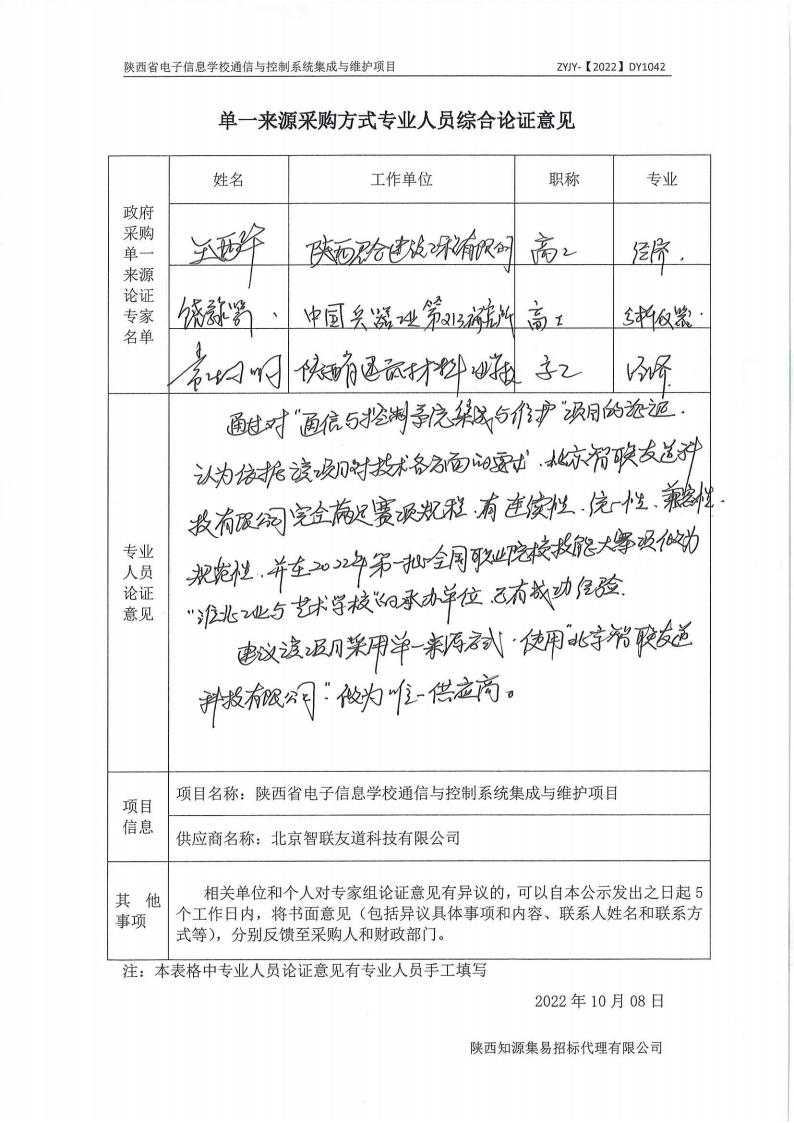 陕西省电子信息学校通信与控制系统集成与维护项目 ZYJY-【2022】DY1042
单一来源采购方式专业人员综合论证意见
政府采购单一来源论证专家名单
姓名 工作单位 职称 专业
王西华 陕西 有限公司 高工 经济.
中国兵器工业第213研究所 高工 分析仪器.
陕西省建筑材料工业学校 高工 经济
专业人员论证意见
通过对“通信与控制系统集成与维护”项目的论证.
认为依据该项目对技术各方面的要求.北京智联友道科
技有限公司完全满足赛项规程.有连续性、统一性、兼容性.
规范性.并在2022年第一批全国职业院校技能大赛项做为
“淮北工业与艺术学校”的承办单位.已有成功经验.
建议该项目采用单一来源方式.使用“北京智联友道
科技有限公司”做为唯一供应商。
项目信息
项目名称：陕西省电子信息学校通信与控制系统集成与维护项目
供应商名称：北京智联友道科技有限公司
其他事项
相关单位和个人对专家组论证意见有异议的，可以自本公示发出之日起 5
个工作日内，将书面意见（包括异议具体事项和内容、联系人姓名和联系方
式等），分别反馈至采购人和财政部门。
注：本表格中专业人员论证意见有专业人员手工填写
2022 年 10 月 08 日
陕西知源集易招标代理有限公司